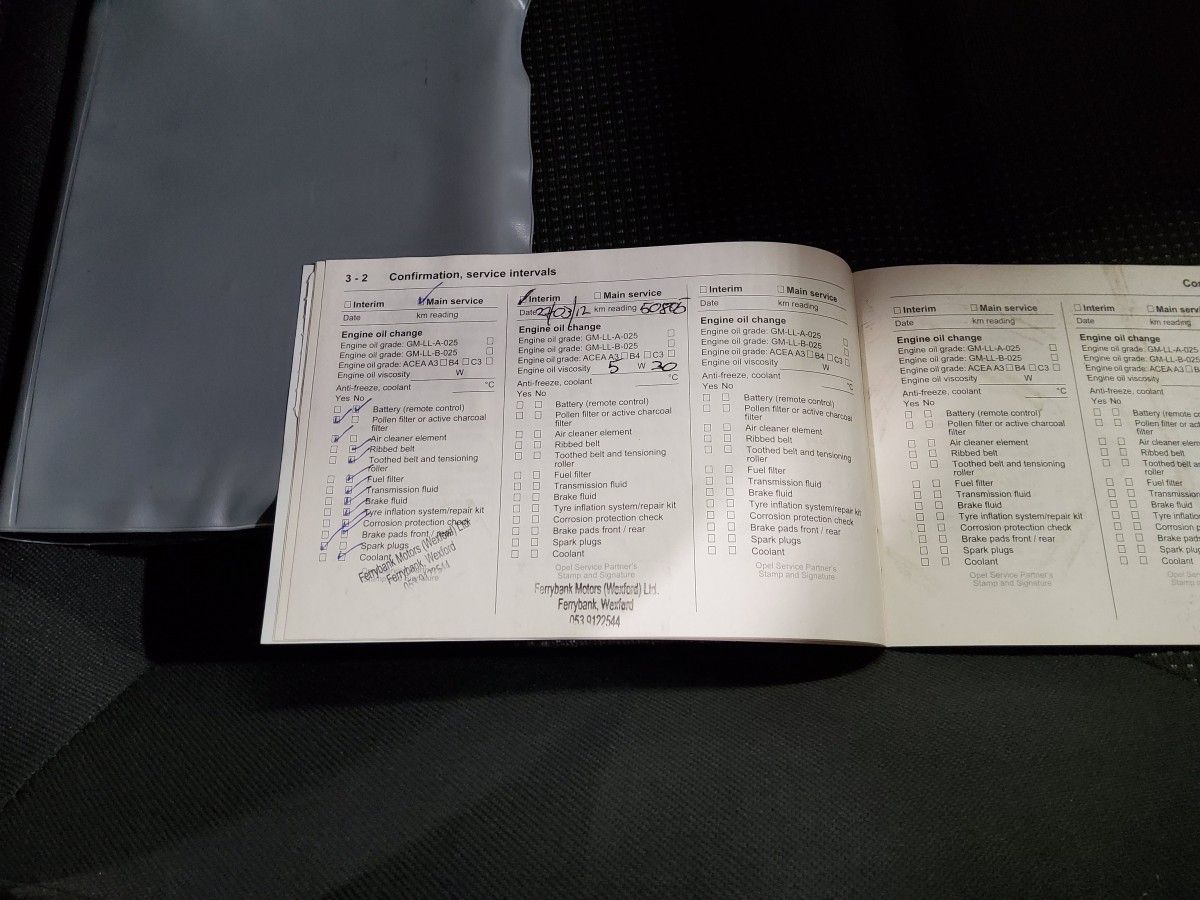 3 - 2 Confirmation, service intervals
Interim Main service
Date km reading
Engine oil change
Engine oil grade: GM-LL-A-025
Engine oil grade: GM-LL-B-025
Engine oil grade: ACEA A3 B4 C3
Engine oil viscosity W
Anti-freeze, coolant °C
Yes No
Battery (remote control)
Pollen filter or active charcoal
filter
Air cleaner element
Ribbed belt
Toothed belt and tensioning
roller
Fuel filter
Transmission fluid
Brake fluid
Tyre inflation system/repair kit
Corrosion protection check
Brake pads front / rear
Spark plugs
Coolant
Ferrybank Motors (Wexford) Ltd.
Ferrybank, Wexford
053 9122544
Interim Main service
Date 22/03/12 km reading 50805
Engine oil change
Engine oil grade: GM-LL-A-025
Engine oil grade: GM-LL-B-025
Engine oil grade: ACEA A3 B4 C3
Engine oil viscosity 5 W 30
Anti-freeze, coolant °C
Yes No
Battery (remote control)
Pollen filter or active charcoal
filter
Air cleaner element
Ribbed belt
Toothed belt and tensioning
roller
Fuel filter
Transmission fluid
Brake fluid
Tyre inflation system/repair kit
Corrosion protection check
Brake pads front / rear
Spark plugs
Coolant
Opel Service Partner's
Stamp and Signature
Ferrybank Motors (Wexford) Ltd.
Ferrybank, Wexford
053 9122544
Interim Main service
Date km reading
Engine oil change
Engine oil grade: GM-LL-A-025
Engine oil grade: GM-LL-B-025
Engine oil grade: ACEA A3 B4 C3
Engine oil viscosity W
Anti-freeze, coolant °C
Yes No
Battery (remote control)
Pollen filter or active charcoal
filter
Air cleaner element
Ribbed belt
Toothed belt and tensioning
roller
Fuel filter
Transmission fluid
Brake fluid
Tyre inflation system/repair kit
Corrosion protection check
Brake pads front / rear
Spark plugs
Coolant
Opel Service Partner's
Stamp and Signature
Interim Main service
Date km reading
Engine oil change
Engine oil grade: GM-LL-A-025
Engine oil grade: GM-LL-B-025
Engine oil grade: ACEA A3 B4 C3
Engine oil viscosity W
Anti-freeze, coolant °C
Yes No
Battery (remote control)
Pollen filter or active charcoal
filter
Air cleaner element
Ribbed belt
Toothed belt and tensioning
roller
Fuel filter
Transmission fluid
Brake fluid
Tyre inflation system/repair kit
Corrosion protection check
Brake pads front / rear
Spark plugs
Coolant
Opel Service Partner's
Stamp and Signature
Interim Main serv
Date km reading
Engine oil change
Engine oil grade: GM-LL-A-025
Engine oil grade: GM-LL-B-025
Engine oil grade: ACEA A3 B
Engine oil viscosity
Anti-freeze, coolant
Yes No
Battery (remote co
Pollen filter or act
filter
Air cleaner eleme
Ribbed belt
Toothed belt an
roller
Fuel filter
Transmission
Brake fluid
Tyre inflation
Corrosion p
Brake pads
Spark plugs
Coolant
Opel Se
Stamp